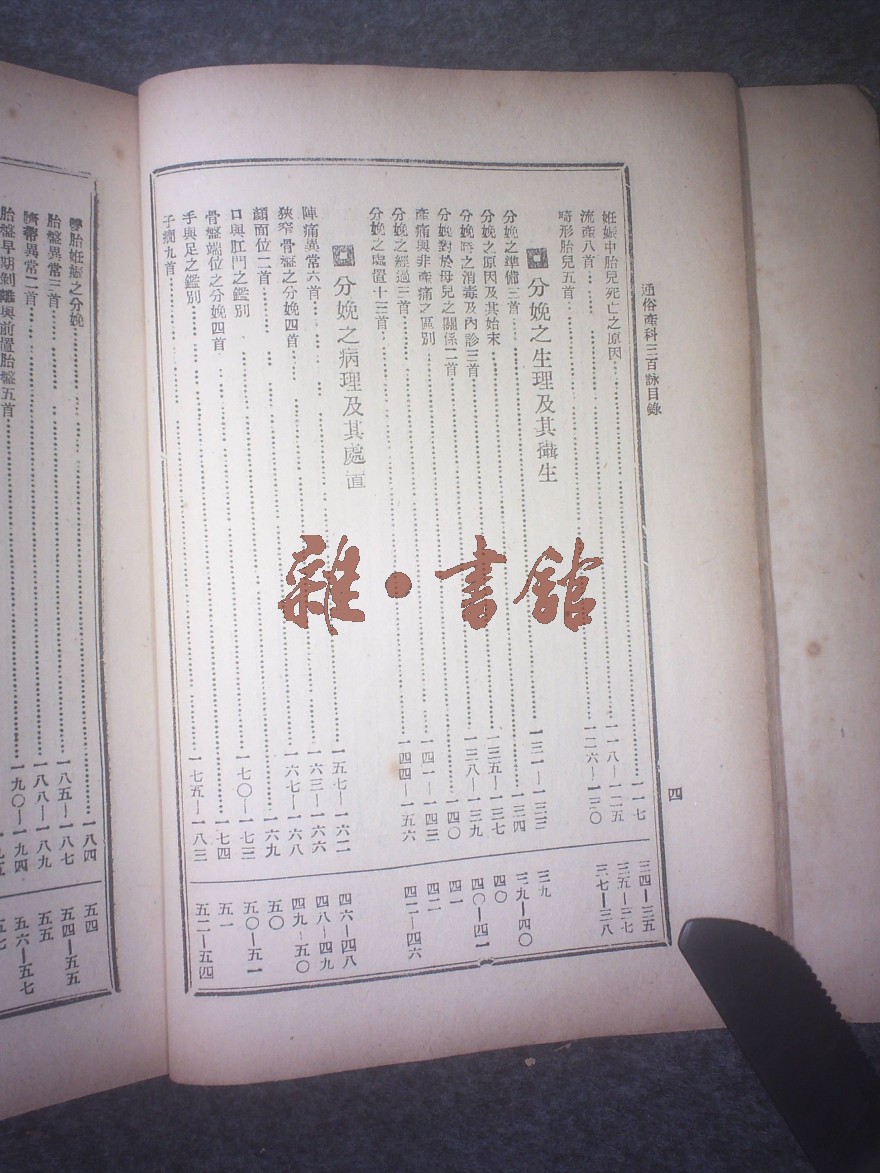 通俗產科三百詠目錄 四
妊娠中胎兒死亡之原因……一一七 三四—三五
流產八首……一一八—一二五 三五—三七
畸形胎兒五首……一二六—一三〇 三七—三八
分娩之生理及其攝生
分娩之準備三首……一三一—一三三 三九
分娩之原因及其始末……一三四 三九—四〇
分娩時之消毒及內診三首……一三五—一三七 四〇
分娩對於母兒之關係二首……一三八—一三九 四〇—四一
產痛與非產痛之區別……一四〇 四一
分娩之經過三首……一四一—一四三 四二
分娩之處置十三首……一四四—一五六 四二—四六
分娩之病理及其處置
陣痛異常六首……一五七—一六二 四六—四八
狹窄骨盤之分娩四首……一六三—一六六 四八—四九
顏面位二首……一六七—一六八 四九—五〇
口與肛門之鑑別……一六九 五〇
骨盤端位之分娩四首……一七〇—一七三 五〇—五一
手與足之鑑別……一七四 五一
子癇九首……一七五—一八三 五二—五四
孿胎妊娠之分娩……一八四 五四
胎盤異常三首……一八五—一八七 五四—五五
臍帶異常二首……一八八—一八九 五五
胎盤早期剝離與前置胎盤五首……一九〇—一九四 五六—五七
雜·書館